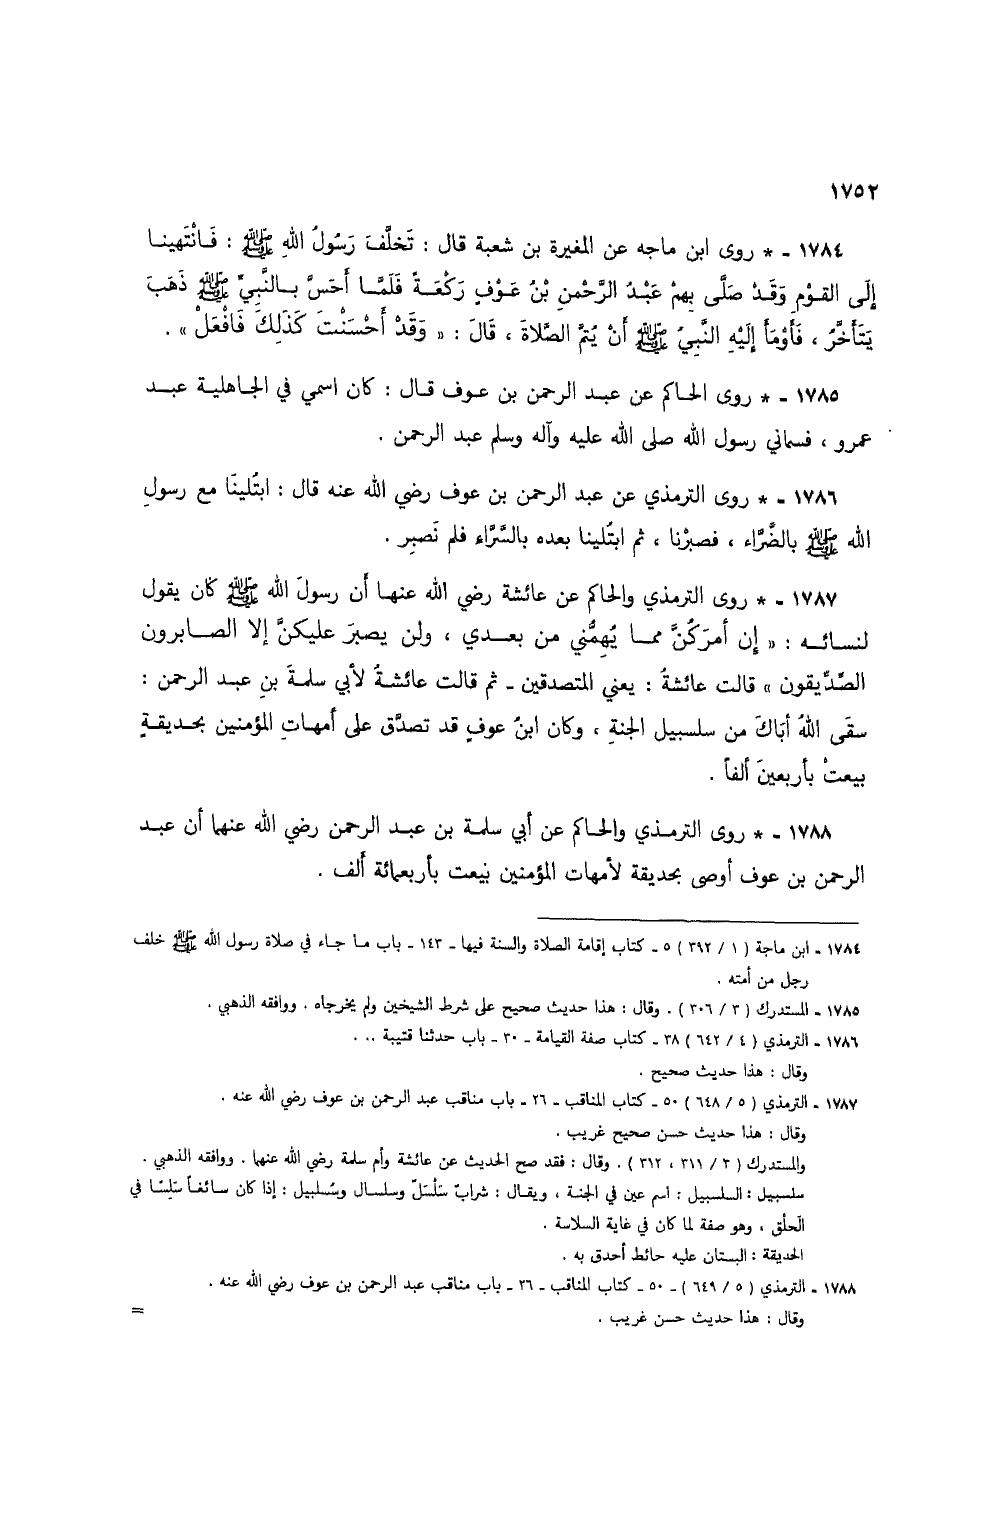 ١٧٥٢
١٧٨٤ - * روى ابن ماجه عن المغيرة بن شعبة قال : تَخلَّفَ رَسُولُ اللهِ ﷺ : فَـانْتَهينـا
إلَى القـوْمِ وَقَـدْ صَلَّى بِهِمْ عَبْـدُ الرَّحْمنِ بْنُ عَـوْفٍ رَكْعَـةً فَلَمَّـا أَحَسَّ بـالنَّبِيِّ ﷺ ذَهَبَ
يَتَأَخَّرُ ، فَأَوْمَأَ إِلَيْهِ النَّبِيُّ ﷺ أَنْ يُتمَّ الصَّلاَةَ ، قَالَ : « وَقَدْ أَحْسَنْتَ كَذَلِكَ فَافْعَلْ » .
١٧٨٥ - * روى الحاكم عن عبـد الرحمن بن عـوف قـال : كان اسمي في الجاهلية عبـد
عمرو ، فسماني رسول الله صلى الله عليه وآله وسلم عبد الرحمن .
١٧٨٦ - * روى الترمذي عن عبد الرحمن بن عوف رضي الله عنه قال : ابتُلينَا مع رسولِ
الله ﷺ بالضَّرَّاء ، فصبرْنا ، ثم ابتُلينا بعده بالسَّرَّاء فلم نَصبِر .
١٧٨٧ - * روى الترمذي والحاكم عن عائشة رضي الله عنهـا أن رسولَ الله ﷺ كان يقول
لنسائـه : « إن أمرَكُنَّ ممـا يُهمُّني من بعـدي ، ولن يصبرَ عليكنَّ إلا الصـابرون
الصِّدِّيقون » قالت عائشةُ : يعني المتصدقين - ثم قالت عائشـةُ لأبي سلمةَ بنِ عبـد الرحمن :
سقَى اللهُ أبَاكَ من سلسبيل الجنةِ ، وكان ابنُ عوفٍ قد تصدَّق على أمهـاتِ المؤمنين بحديقـةٍ
بيعتْ بأربعينَ ألفاً .
١٧٨٨ - * روى الترمـذي والحاكم عن أبي سلمة بن عبـد الرحمن رضي الله عنهما أن عبـد
الرحمن بن عوف أوصى بحديقة لأمهات المؤمنين بيعت بأربعمائة ألف .
١٧٨٤ - ابن ماجة ( ١ / ٣٩٢ ) ٥ - كتاب إقامة الصلاة والسنة فيها - ١٤٣ - باب مـا جـاء في صلاة رسول الله ﷺ خلف
رجل من أمته .
١٧٨٥ - المستدرك ( ٣ / ٣٠٦ ) . وقال : هذا حديث صحيح على شرط الشيخين ولم يخرجاه . ووافقه الذهبي .
١٧٨٦ - الترمذي ( ٤ / ٦٤٢ ) ٣٨ - كتاب صفة القيامة - ٣٠ - باب حدثنا قتيبة .. .
وقال : هذا حديث صحيح .
١٧٨٧ - الترمذي ( ٥ / ٦٤٨ ) ٥٠ - كتاب المناقب - ٢٦ - باب مناقب عبد الرحمن بن عوف رضي الله عنه .
وقال : هذا حديث حسن صحيح غريب .
والمستدرك ( ٣ / ٣١١ ، ٣١٢ ) . وقال : فقد صح الحديث عن عائشة وأم سلمة رضي الله عنهما . ووافقه الذهبي .
سلسبيل : السلسبيل : اسم عين في الجنـة ، ويقـال : شرابٌ سَلْسَلٌ وسلسال وسُلسبيل : إذا كان سـائغـاً سَلِسًـا في
الحَلْق ، وهو صفة لما كان في غاية السلاسة .
الحديقة : البستان عليه حائط أحدق به .
١٧٨٨ - الترمذي ( ٥ / ٦٤٩ ) - ٥٠ - كتاب المناقب - ٢٦ - باب مناقب عبد الرحمن بن عوف رضي الله عنه .
وقال : هذا حديث حسن غريب .
=